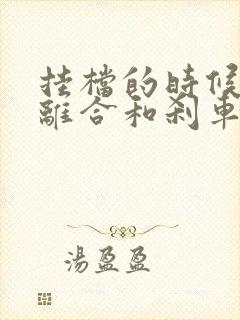 挂檔的時候
離合和刹車
湯盈盈